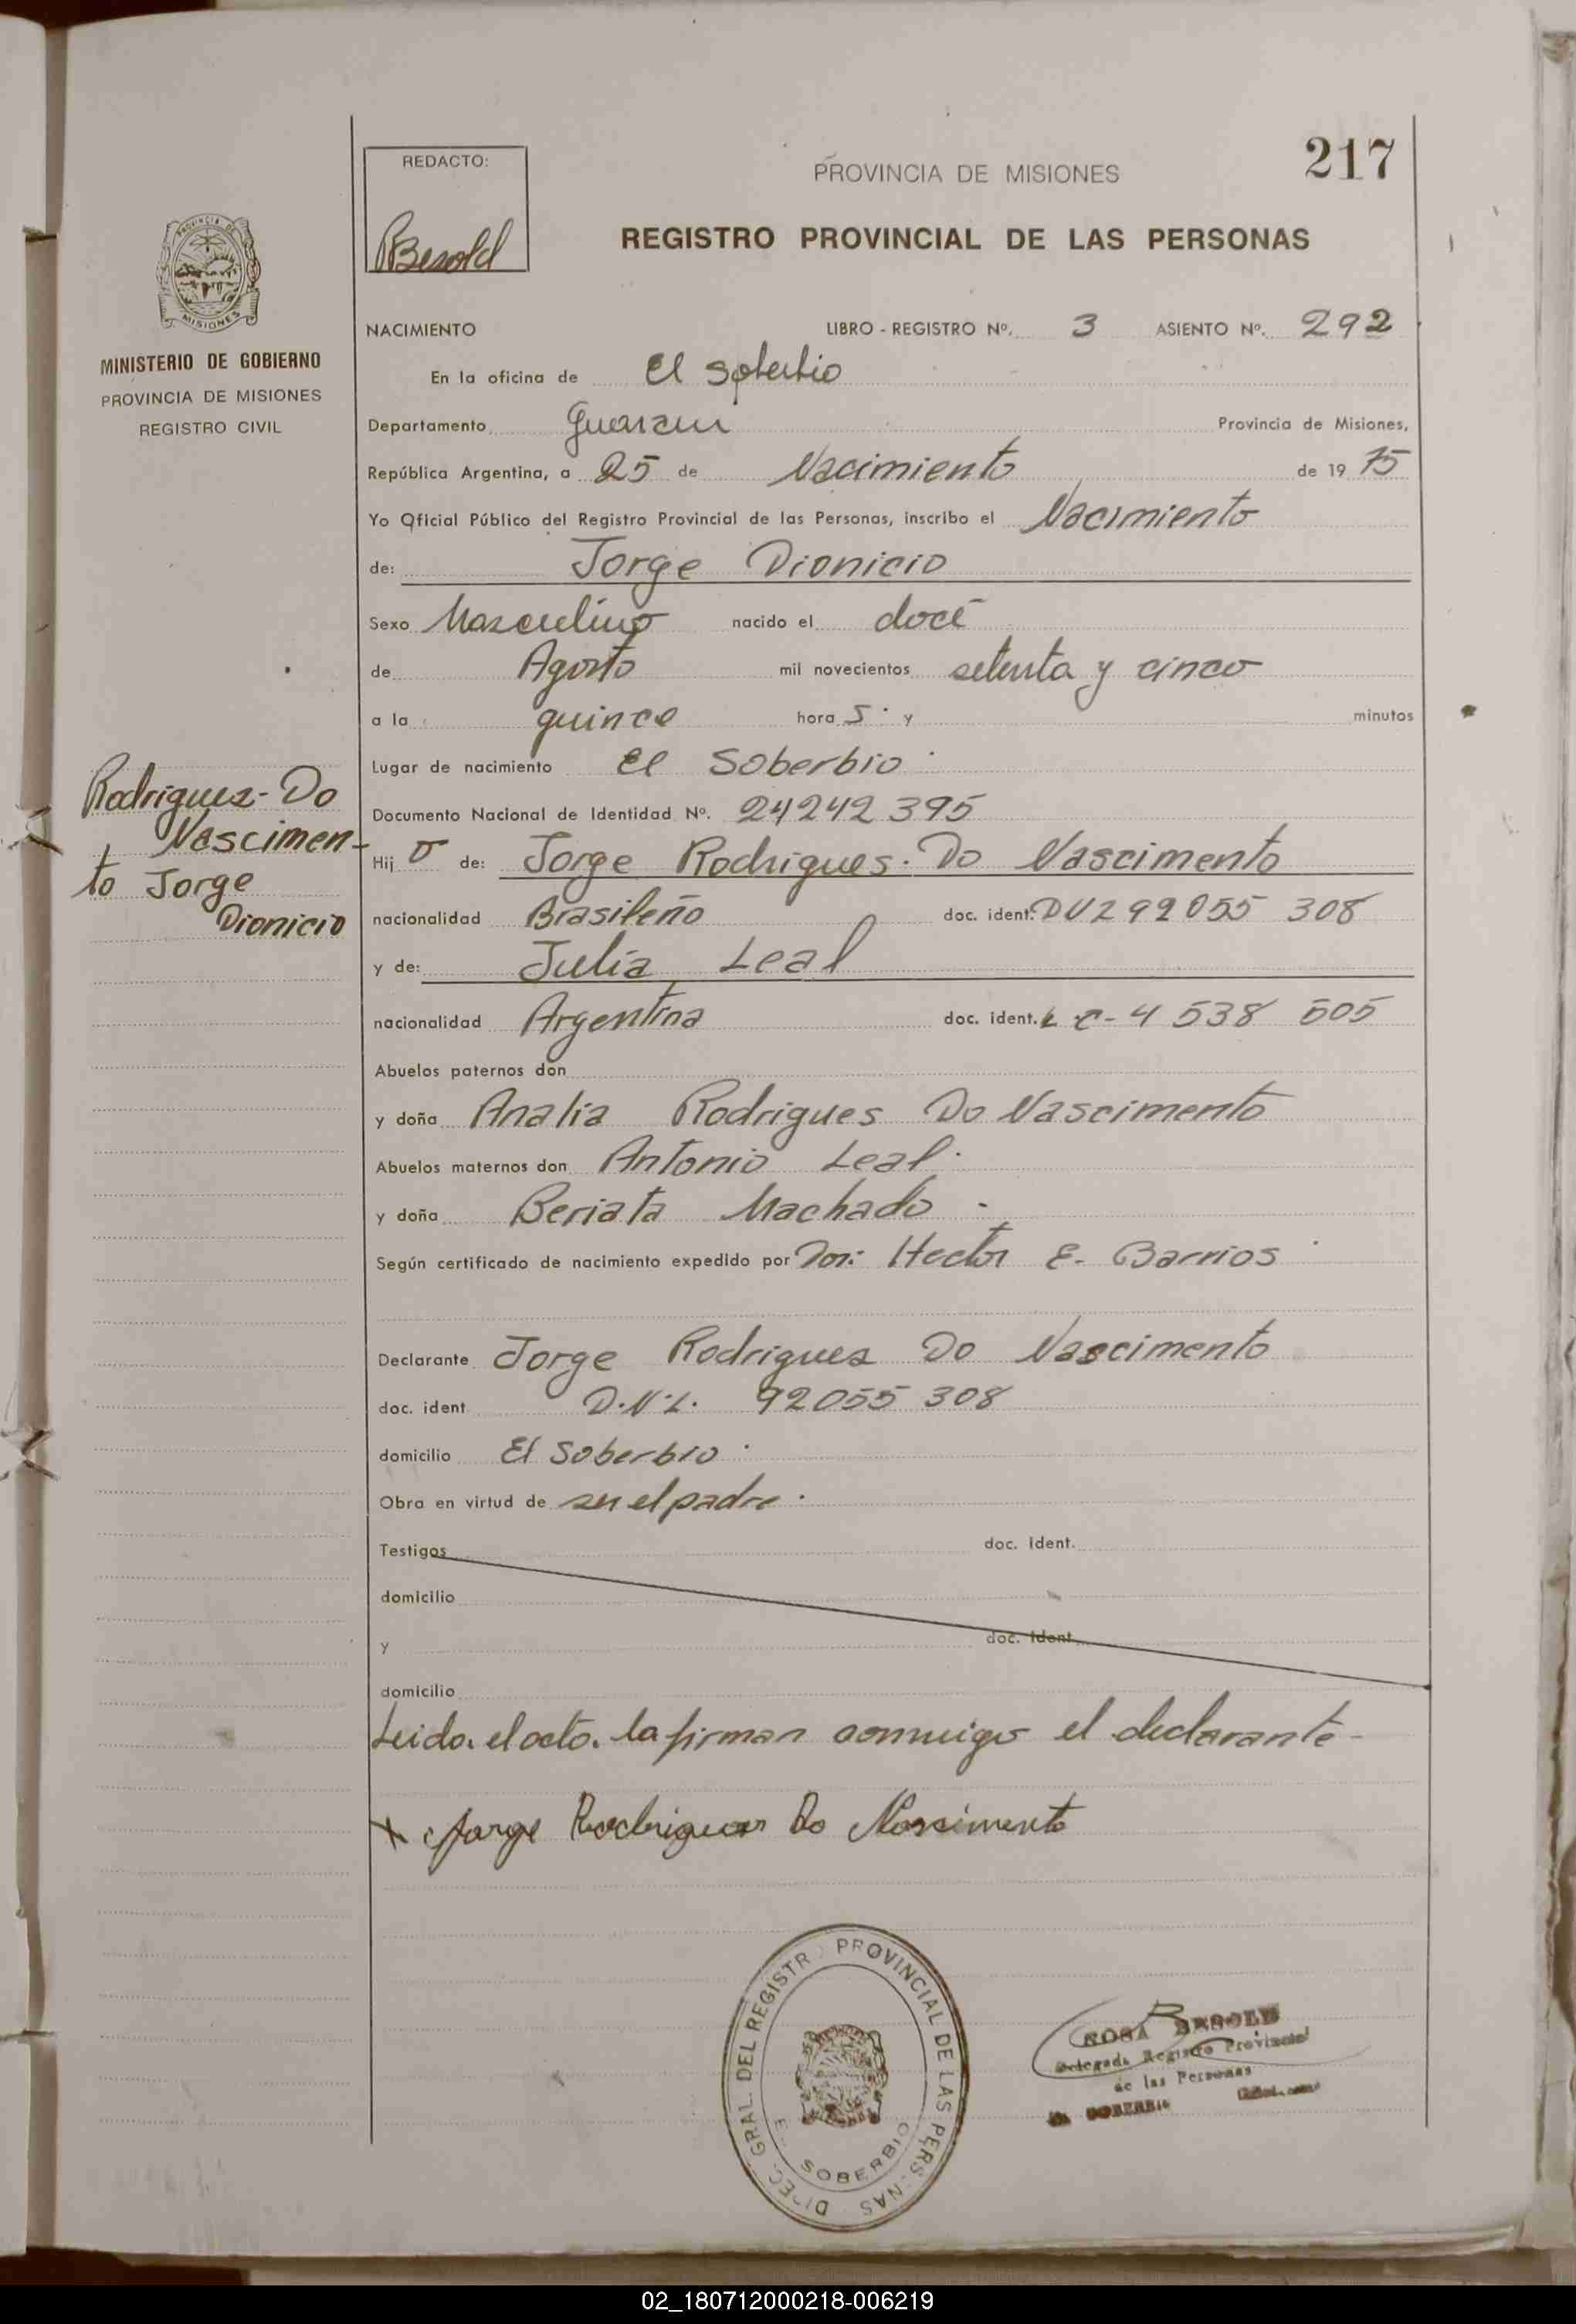 217
REDACTO:
PROVINCIA DE MISIONES
RBesold
REGISTRO PROVINCIAL DE LAS PERSONAS
PROVINCIA DE
MISIONES
MINISTERIO DE GOBIERNO
PROVINCIA DE MISIONES
REGISTRO CIVIL
NACIMIENTO LIBRO - REGISTRO Nº. 3 ASIENTO Nº. 292
En la oficina de El Soberbio
Departamento Guarani Provincia de Misiones,
República Argentina, a 25 de Nacimiento de 19 75
Yo Oficial Público del Registro Provincial de las Personas, inscribo el Nacimiento
de: Jorge Dionicio
Sexo Masculino nacido el doce
de Agosto mil novecientos setenta y cinco
a la quince hora s. y minutos
Lugar de nacimiento El Soberbio.
Documento Nacional de Identidad Nº. 24242395
Rodriguez-Do
Nascimen-
to Jorge
Dionicio
Hij o de: Jorge Rodrigues. Do Nascimento
nacionalidad Brasileño doc. ident. DNI 92055 308
y de: Julia Leal
nacionalidad Argentina doc. ident. L C-4 538 505
Abuelos paternos don
y doña Analia Rodrigues Do Nascimento
Abuelos maternos don Antonio Leal.
y doña Beriata Machado -
Según certificado de nacimiento expedido por Dor: Hector E. Barrios.
Declarante Jorge Rodriguez Do Nascimento
doc. ident. D.N.I. 92055 308
domicilio El Soberbio.
Obra en virtud de ser el padre.
Testigos doc. ident.
domicilio
y doc. ident.
domicilio
Leida el acta. la firman conmigo el declarante-
x Jorge Rodrigues Do Nascimento
DIREC. GRAL. DEL REGISTRO PROVINCIAL DE LAS PERSONAS
EL SOBERBIO
ROSA BESOLD
Delegada Registro Provincial
de las Personas
EL SOBERBIO
02_180712000218-006219